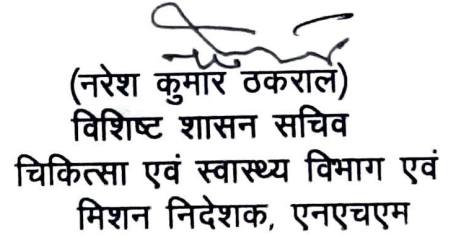 (नरेश कुमार ठकराल)
विशिष्ट शासन सचिव
चिकित्सा एवं स्वास्थ्य विभाग एवं
मिशन निदेशक, एनएचएम